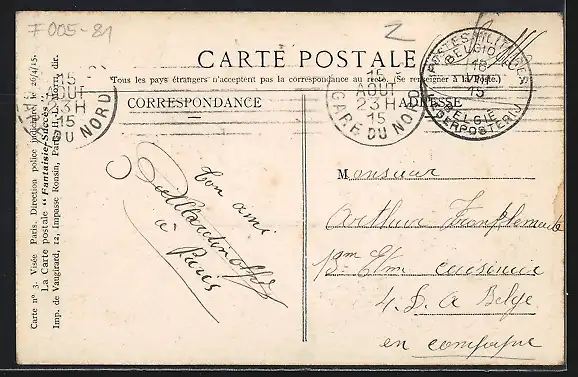 7005-81
Z
CARTE POSTALE
Tous les pays étrangers n'acceptent pas la correspondance au recto. (Se renseigner à la Poste.)
CORRESPONDANCE
ADRESSE
15
AOUT
23 H
15
GARE DU NORD
15
AOUT
23 H
15
GARE DU NORD
POSTES MILITAIRES
BELGIQUE
18
VIII
15
BELGIE
LEGERPOSTERIJ
Carte n° 3. Visée Paris. Direction police judiciaire, le 26/4/15.
La Carte postale "Fantaisie-Succès"
Imp. de Vaugirard, 12, Impasse Ronsin, Paris. dir.
ton ami
à Paris
Monsieur
Arthur
4. D. A Belge
en campagne